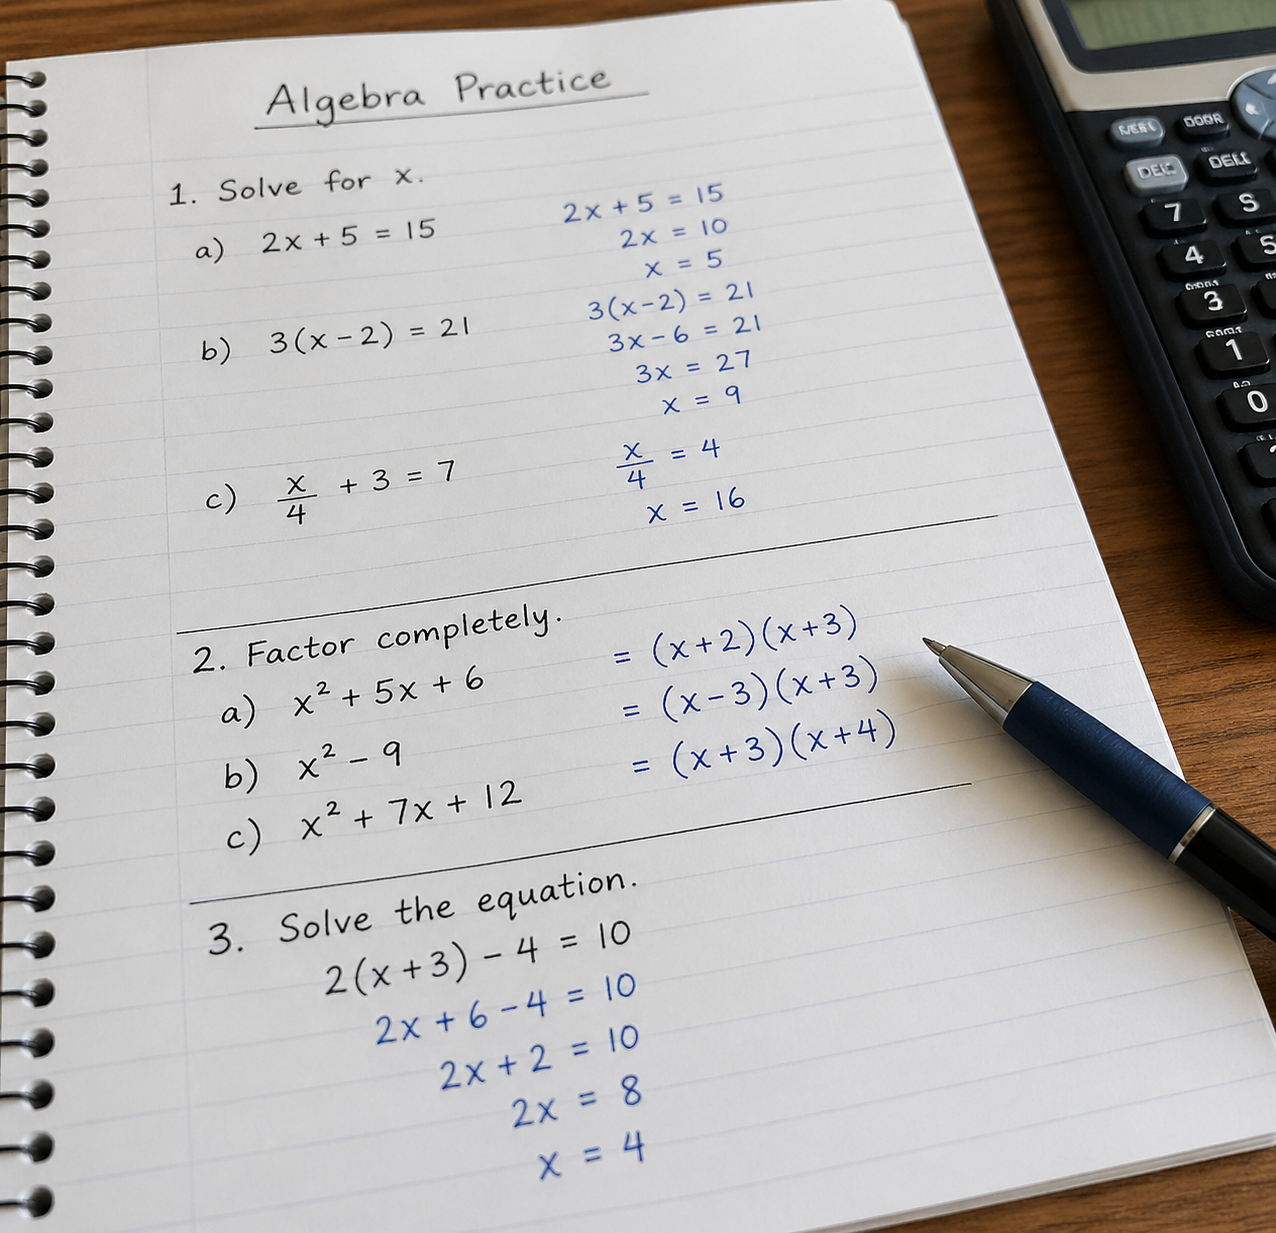 Algebra Practice
1. Solve for x.
a) 2x + 5 = 15
2x + 5 = 15
2x = 10
x = 5
b) 3(x - 2) = 21
3(x - 2) = 21
3x - 6 = 21
3x = 27
x = 9
c) x/4 + 3 = 7
x/4 = 4
x = 16
2. Factor completely.
a) x² + 5x + 6 = (x + 2)(x + 3)
b) x² - 9 = (x - 3)(x + 3)
c) x² + 7x + 12 = (x + 3)(x + 4)
3. Solve the equation.
2(x + 3) - 4 = 10
2x + 6 - 4 = 10
2x + 2 = 10
2x = 8
x = 4
7
4
3
1
0